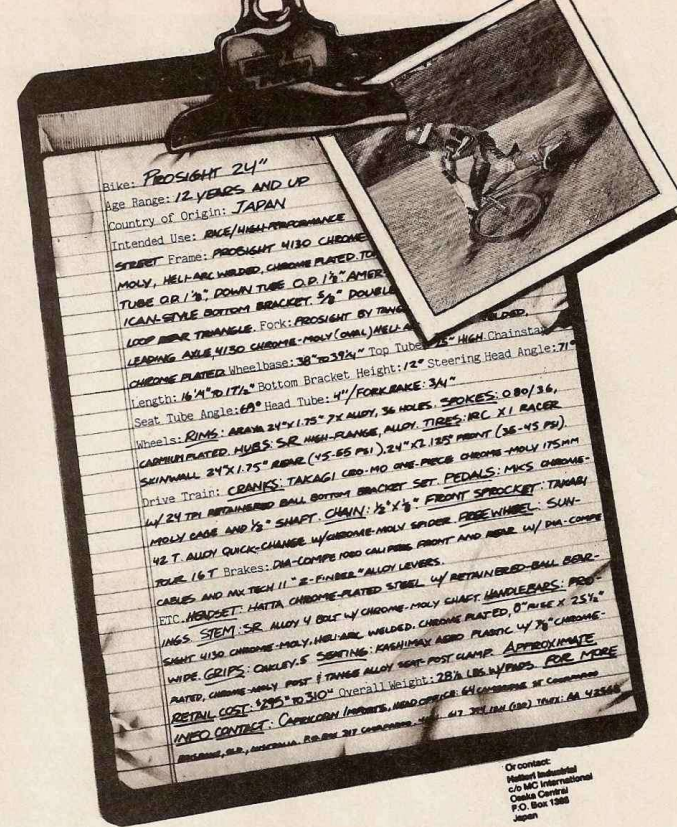 Bike: PROSIGHT 24"
Age Range: 12 YEARS AND UP
Country of Origin: JAPAN
Intended Use: RACE/HIGH-PERFORMANCE
STREET Frame: PROSIGHT 4130 CHROME
MOLY, HELI-ARC WELDED, CHROME PLATED. TO
TUBE O.D. 1⅛", DOWN TUBE O.D. 1½" AMER
ICAN-STYLE BOTTOM BRACKET. ⅝" DOUBLE
LOOP REAR TRIANGLE. Fork: PROSIGHT BY TANG
LEADING AXLE, 4130 CHROME-MOLY (OVAL) HELI-A ELDED,
CHROME PLATED. Wheelbase: 38" TO 39¼" Top Tube HIGH. Chainsta
Length: 16¼" TO 17½" Bottom Bracket Height: 12" Steering Head Angle: 71°
Seat Tube Angle: 69° Head Tube: 4"/FORK RAKE: 3/4"
Wheels: RIMS: ARAYA 24" X 1.75" 7X ALLOY, 36 HOLES. SPOKES: 080/36,
CADMIUM PLATED. HUBS: SR HIGH-FLANGE, ALLOY. TIRES: IRC X1 RACER
SKINWALL 24" X 1.75" REAR (45-55 PSI), 24" X 2.125" FRONT (35-45 PSI).
Drive Train: CRANKS: TAKAGI CRO-MO ONE-PIECE CHROME-MOLY 175MM
W/ 24 TPI RETAINERED BALL BOTTOM BRACKET SET. PEDALS: MKS CHROME-
MOLY CAGE AND ½" SHAFT. CHAIN: ½" X ⅛" FRONT SPROCKET: TAKAGI
42 T. ALLOY QUICK-CHANGE W/CHROME-MOLY SPIDER. FREEWHEEL: SUN-
TOUR 16T Brakes: DIA-COMPE CALIPERS FRONT AND REAR W/ DIA-COMPE
CABLES AND MX TECH II "2-FINGER" ALLOY LEVERS.
ETC. HEADSET: HATTA CHROME-PLATED STEEL W/ RETAINERED-BALL BEAR-
INGS. STEM: SR ALLOY 4 BOLT W/ CHROME-MOLY SHAFT. HANDLEBARS: PRO-
SIGHT 4130 CHROME-MOLY, HELI-ARC WELDED. CHROME PLATED, 8" RISE X 25½"
WIDE. GRIPS: OAKLEY.5 SEATING: KASHIMAX AERO PLASTIC W/ ⅞" CHROME-
PLATED, CHROME-MOLY POST & TANGE ALLOY SEAT POST CLAMP. APPROXIMATE
RETAIL COST: $295 TO 310 Overall Weight: 28½ LBS W/PADS. FOR MORE
INFO CONTACT: CAPRICORN IMPORTS, HEAD OFFICE: 64 CAMBRIDGE ST COORPAROO
BRISBANE, QLD., AUSTRALIA. P.O. BOX 317 COORPAROO,
Or contact:
Hattori Industrial
c/o MC International
Osaka Central
P.O. Box 1388
Japan